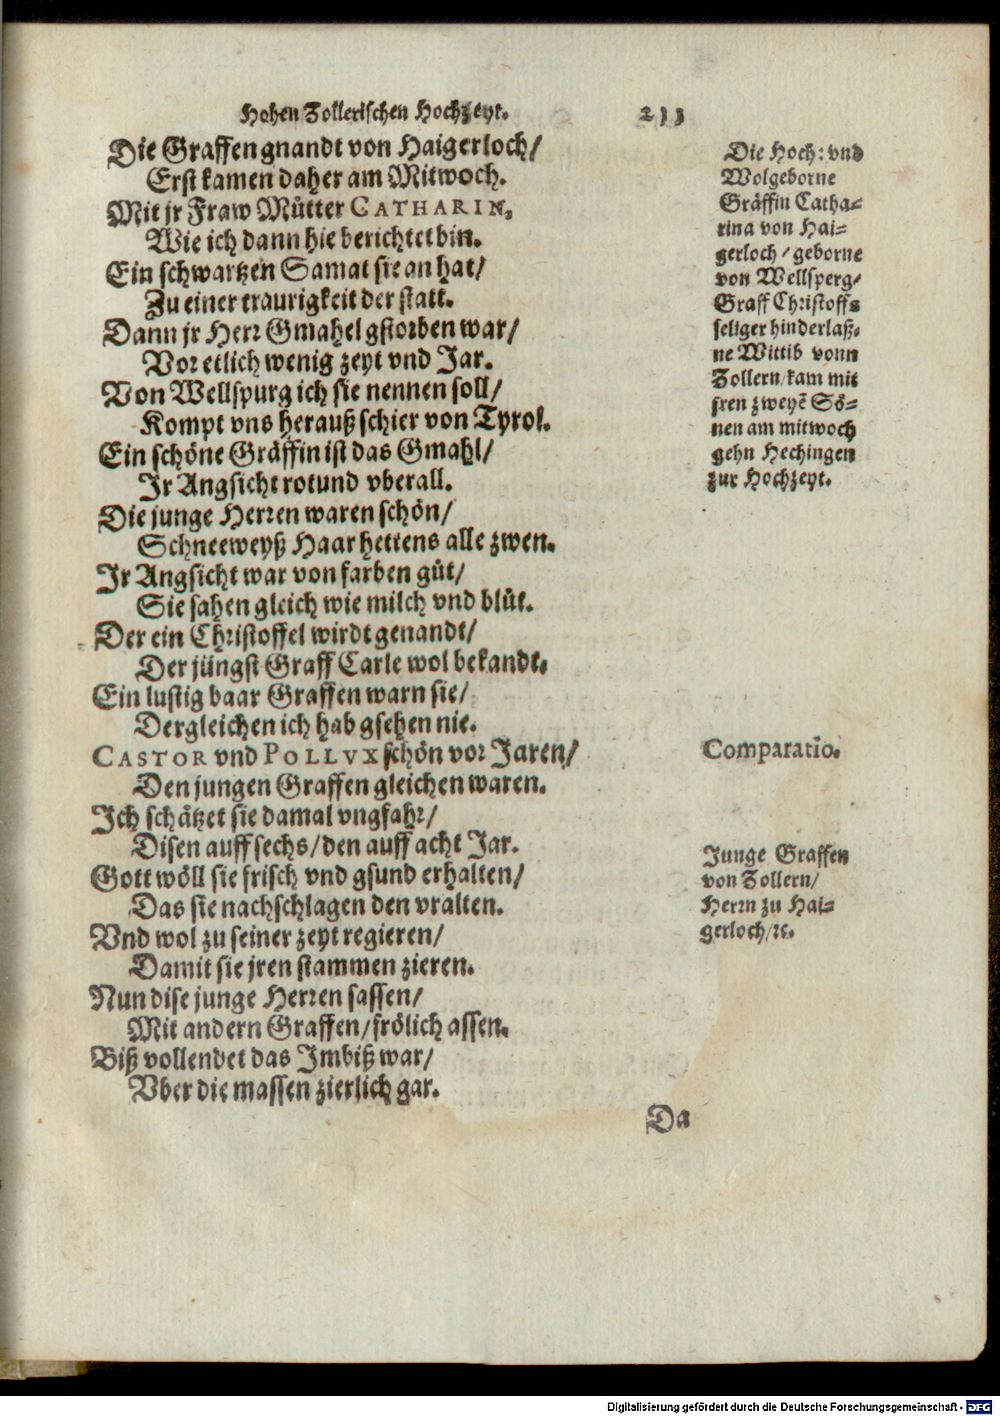 Hohen Zollerischen Hochzeyt. 233
Die Graffen gnandt von Haigerloch/
Erst kamen daher am Mitwoch.
Mit jr Fraw Mütter CATHARIN,
Wie ich dann hie berichtet bin.
Ein schwartzen Samat sie an hat/
Zu einer traurigkeit der statt.
Dann jr Herr Gmahel gstorben war/
Vor etlich wenig zeyt vnd Jar.
Von Wellspurg ich sie nennen soll/
Kompt vns herauß schier von Tyrol.
Ein schöne Gräffin ist das Gmahl/
Ir Angsicht rotund vberall.
Die junge Herren waren schön/
Schneeweyß Haar hettens alle zwen.
Ir Angsicht war von farben güt/
Sie sahen gleich wie milch vnd blüt.
Der ein Christoffel wirdt genandt/
Der jüngst Graff Carle wol bekandt.
Ein lustig baar Graffen warn sie/
Dergleichen ich hab gsehen nie.
CASTOR vnd POLLVX schön vor Jaren/
Den jungen Graffen gleichen waren.
Ich schätzet sie damal vngfahr/
Disen auff sechs/den auff acht Jar.
Gott wöll sie frisch vnd gsund erhalten/
Das sie nachschlagen den vralten.
Vnd wol zu seiner zeyt regieren/
Damit sie jren stammen zieren.
Nun dise junge Herren sassen/
Mit andern Graffen/frölich assen.
Biß vollendet das Imbiß war/
Vber die massen zierlich gar.
Da
Die Hoch: vnd
Wolgeborne
Gräffin Catha=
rina von Hai=
gerloch/geborne
von Wellsperg/
Graff Christoffs
seliger hinderlaß=
ne Wittib vonn
Zollern/kam mit
jren zweyē Sö=
nen am mitwoch
gehn Hechingen
zur Hochzeyt.
Comparatio.
Junge Graffen
von Zollern/
Herrn zu Hai=
gerloch/ꝛc.
Digitalisierung gefördert durch die Deutsche Forschungsgemeinschaft - DFG